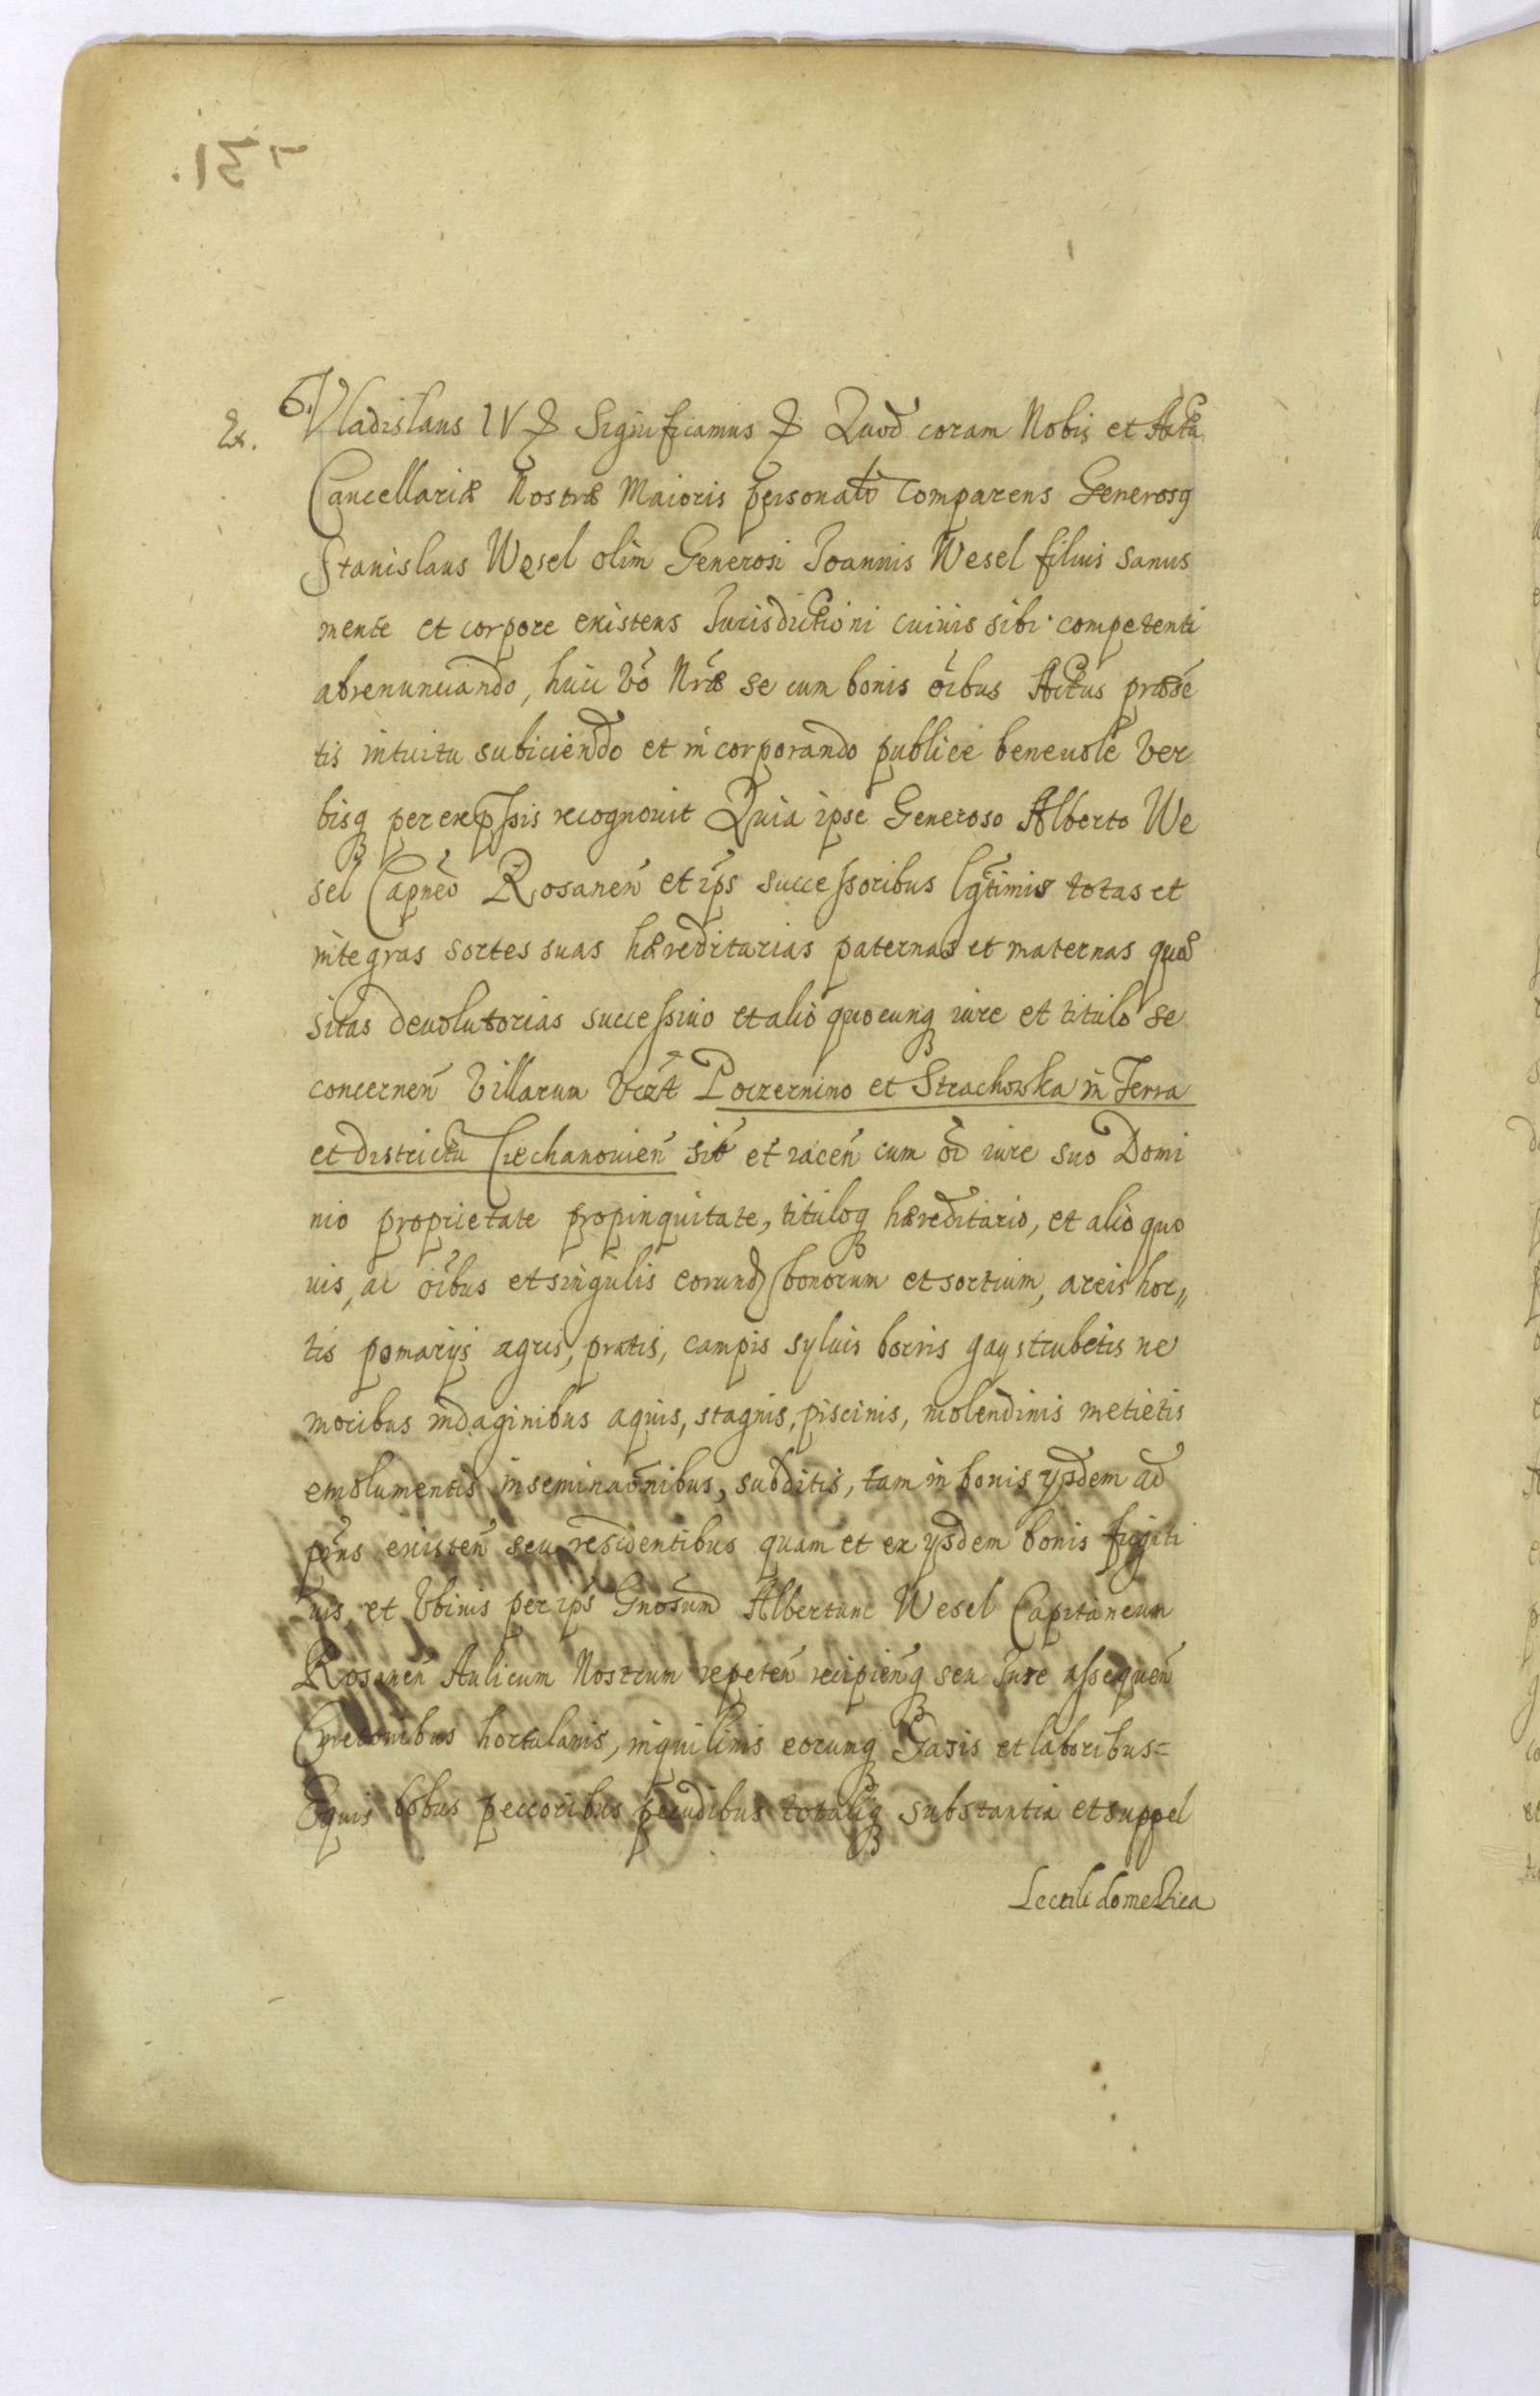 731.
Ex. 6. Vladislaus IV & Significamus & Quod coram Nobis et Acta
Cancellariæ Nostræ Maioris personalr comparens Generosq
Stanislaus Wesel olim Generosi Joannis Wesel filius sanus
mente et corpore existens Jurisdictioni cuiuis sibi competenti
abrenunciando, huic vō Nrǣ se cum bonis oībus Actus præsē
tis intuitu subiiciendo et incorporando publicè beneuolè ver
bisq per expssis recognouit Quia ipse Generoso Alberto We
sel Capneō Rosanen̄ et ip̄s successoribus lg̅timis totas et
integras sortes suas hæreditarias paternas et maternas quæ
sitas deuolutorias successiuo et alio quocunq iure et titulo se
concernen̄ Villarum vczt Poczernino et Strachowka in Terra
et districtu Ciechanouien̄ sit̄ et iacen̄ cum oī iure suo Domi
nio proprietate propinquitate, tituloq hæreditario, et alio quo
uis, ac oībus et singulis eorund bonorum et sortium, areis hor„
tis pomarijs agris, pratis, campis syluis borris gays trubetis ne
moribus indaginibus aquis, stagnis, piscinis, molendinis metietis
emolumentis inseminaōnibus, subditis, tam in bonis ysdem ad
pn̄s existen̄ seu residentibus quam et ex ysdem bonis fugiti
uis, et Vbiuis per ip̄s Gnosum Albertum Wesel Capitaneum
Rosanen̄ Aulicum Nostrum repeten̄ recipienq̄ seu Jure assequen̄
Cmetonibus hortulanis, inquilinis eorumq Gazis et laboribus=
Equis bobus peccoribus pecudibus totaliq substantia et suppel
Lectili domestica